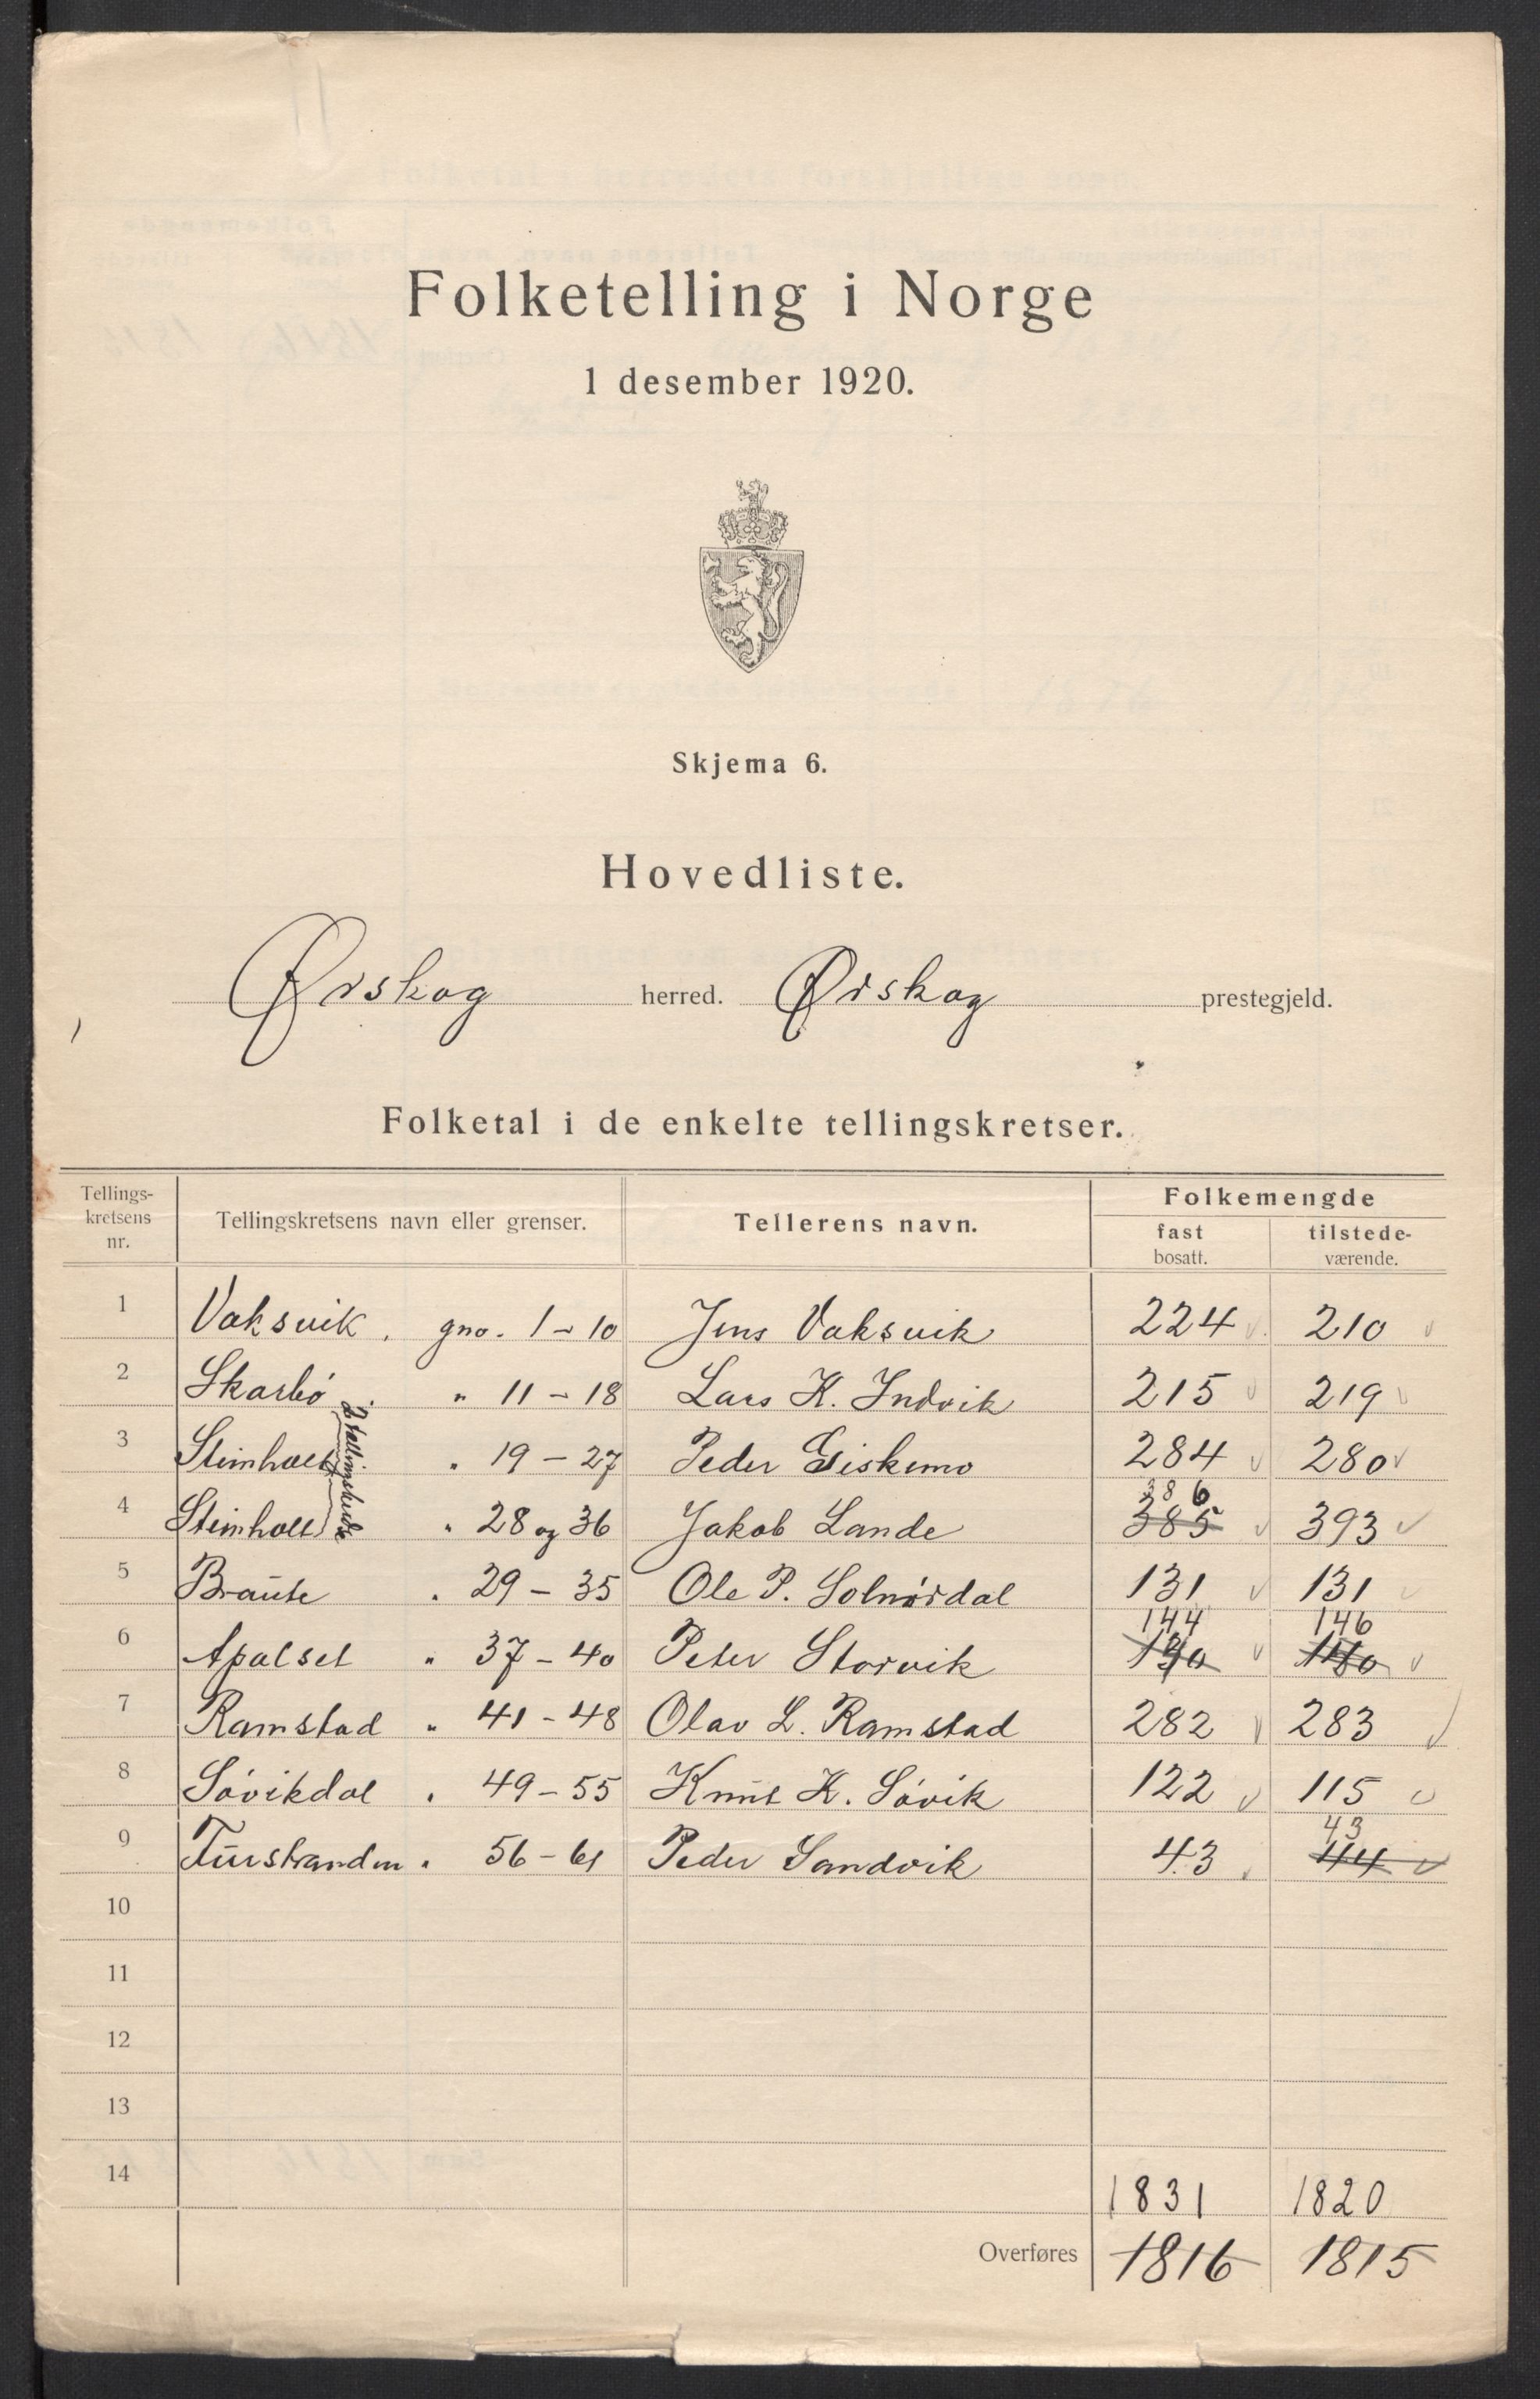 Folketelling i Norge
1 desember 1920.
Skjema 6.
Hovedliste.
Ørskog herred. Ørskog prestegjeld.
Folketal i de enkelte tellingskretser.
Tellings-kretsens nr. Tellingskretsens navn eller grenser. Tellerens navn. Folkemengde
fast bosatt. tilstede-værende.
1 Vaksvik, gno. 1 - 10 Jens Vaksvik 224 210
2 Skarbö " 11 - 18 Lars K. Indvik 215 219
3 Steinholt " 19 - 27 Peder Giskemo 284 280
386
4 Steinholt " 28 og 36 Jakob Lande 385 393
5 Braute " 29 - 35 Ole P. Solnørdal 131 131
144 146
6 Apalset " 37 - 40 Peter Storvik 130 140
7 Ramstad " 41 - 48 Olav L. Ramstad 282 283
8 Søvikdal " 49 - 55 Knut K. Søvik 122 115
43
9 Furstranden " 56 - 61 Peder Sandvik 43 44
10
11
12
13
14
1831 1820
Overføres 1816 1815